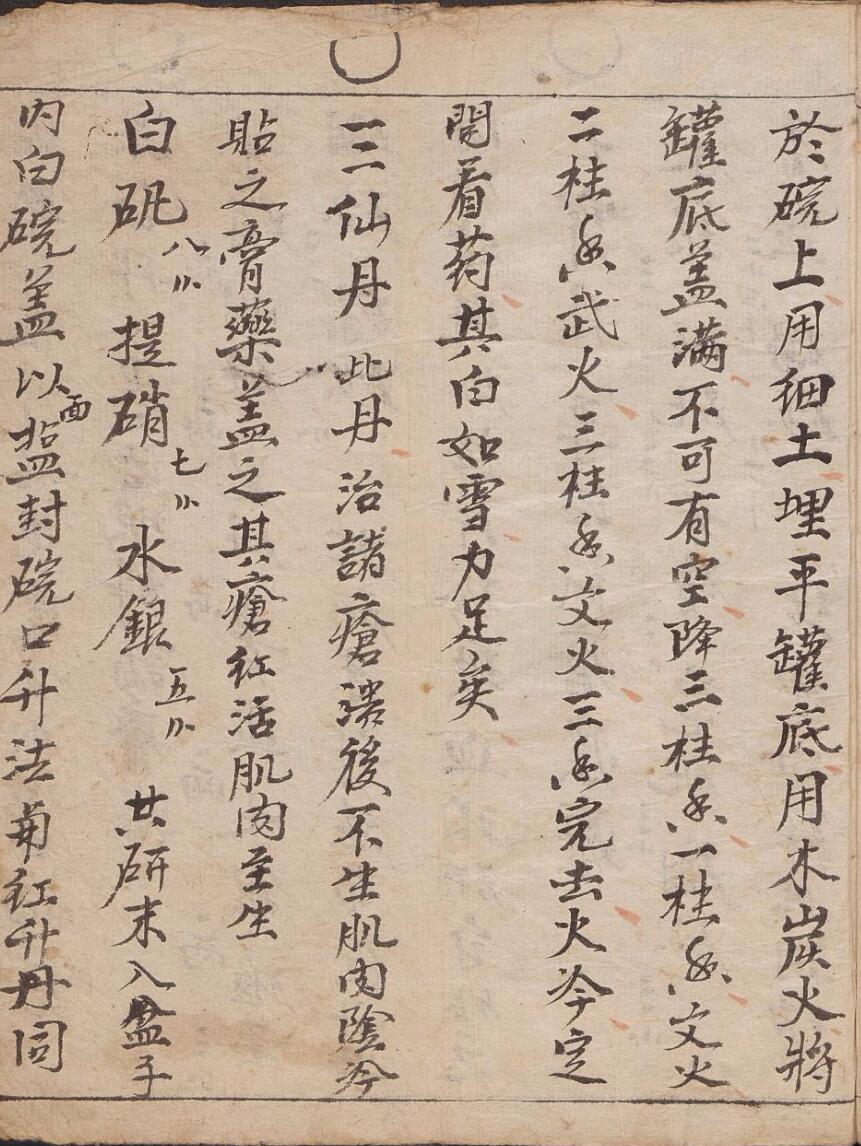 於碗上用细土埋平罐底用木炭火將
罐底盖满不可有空降三柱香一柱香文火
二柱香武火三柱香文火三香完去火冷定
開看药其白如雪力足矣
三仙丹此丹治諸瘡潰後不生肌肉陰冷
貼之膏藥盖之其瘡红活肌肉主生
白矾八〢提硝七〢水銀五〢共研末入盆子
内白碗盖以面盐封碗口升法与红升丹同